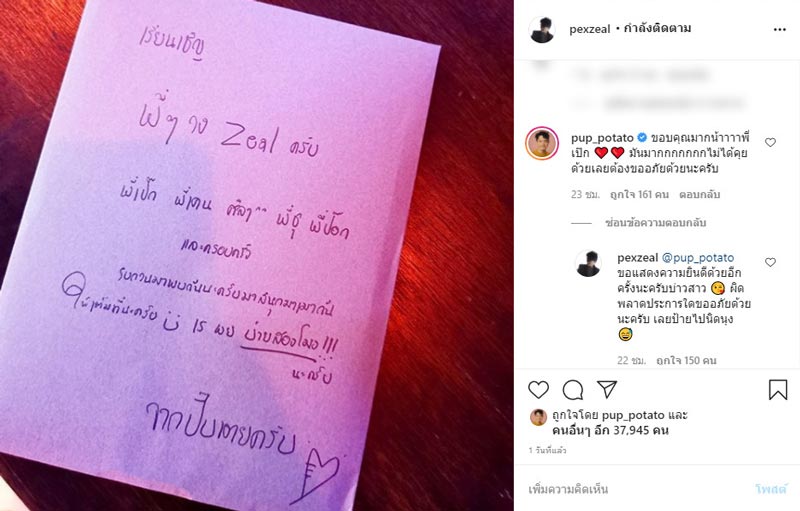 เรียนเชิญ
พี่ๆ วง Zeal ครับ
พี่เป๊ก พี่เคน ศิลา^^ พี่ชุ พี่ป๊อก
และครอบครัว
รบกวนมาพบกันนะครับมาสนุกมาเมากัน
ให้เต็มที่นะครับ 15 พย บ่ายสองโมง!!!
นะครับ
จากปั๊บเองครับ
pexzeal • กำลังติดตาม
pup_potato ขอบคุณมากน้าาาาพี่
เป๊ก ❤️❤️ มันมากกกกกกไม่ได้คุย
ด้วยเลยต้องขออภัยด้วยนะครับ
23 ชม. ถูกใจ 161 คน ตอบกลับ
ซ่อนข้อความตอบกลับ
pexzeal @pup_potato
ขอแสดงความยินดีด้วยอีก
ครั้งนะครับบ่าวสาว 😘 ผิด
พลาดประการใดขออภัยด้วย
นะครับ เลยป้ายไปนิดนุง
😅
22 ชม. ถูกใจ 150 คน
ถูกใจโดย pup_potato และ
คนอื่นๆ อีก 37,945 คน
1 วันที่แล้ว
เพิ่มความคิดเห็น
โพสต์